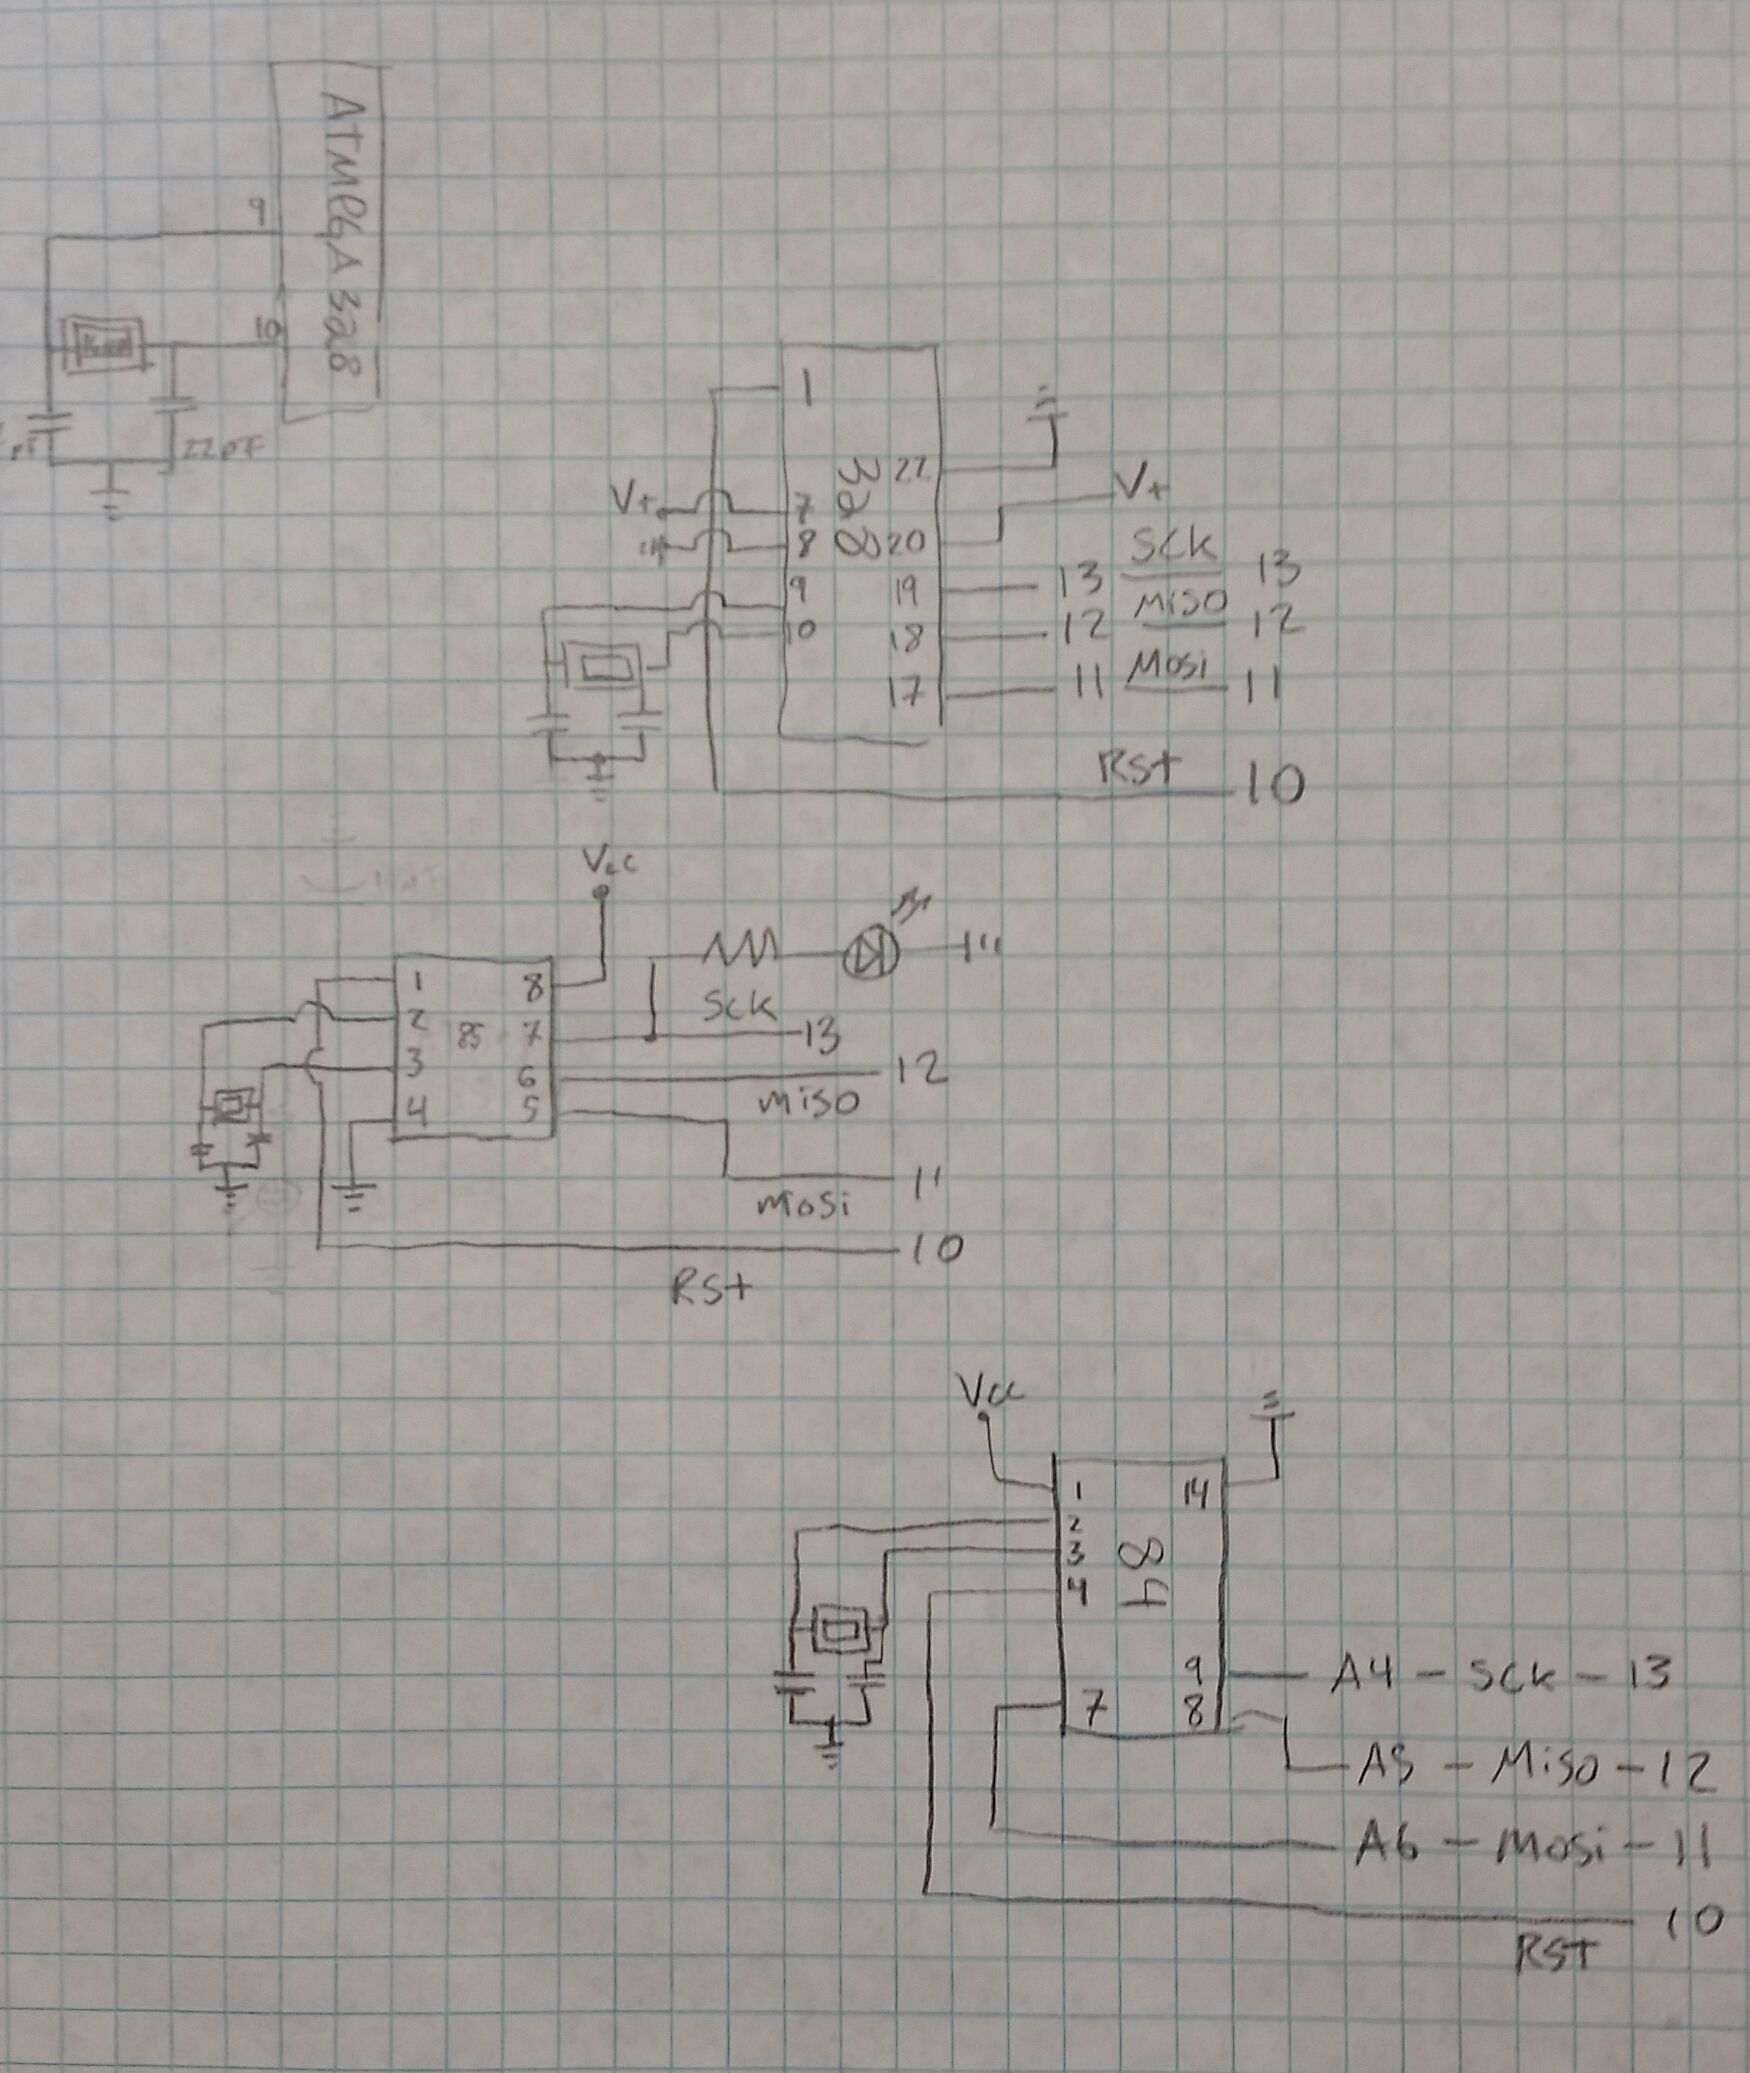 ATMEGA 328
9
10
22pF
1
22
V+
7
328
V+
8
20
SCK
9
19
13
13
MISO
10
18
12
12
MOSI
17
11
11
Rst
10
Vcc
1
8
SCK
2
85
7
13
3
6
12
MISO
4
5
11
MOSI
10
RST
Vcc
1
14
2
3
84
4
9
A4 - SCK - 13
7
8
A5 - MISO - 12
A6 - MOSI - 11
10
RST